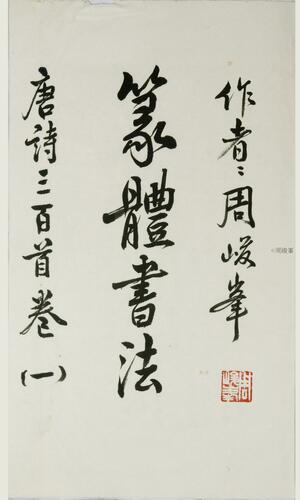 作者：周峻峯
篆體書法
唐詩三百首卷(一)